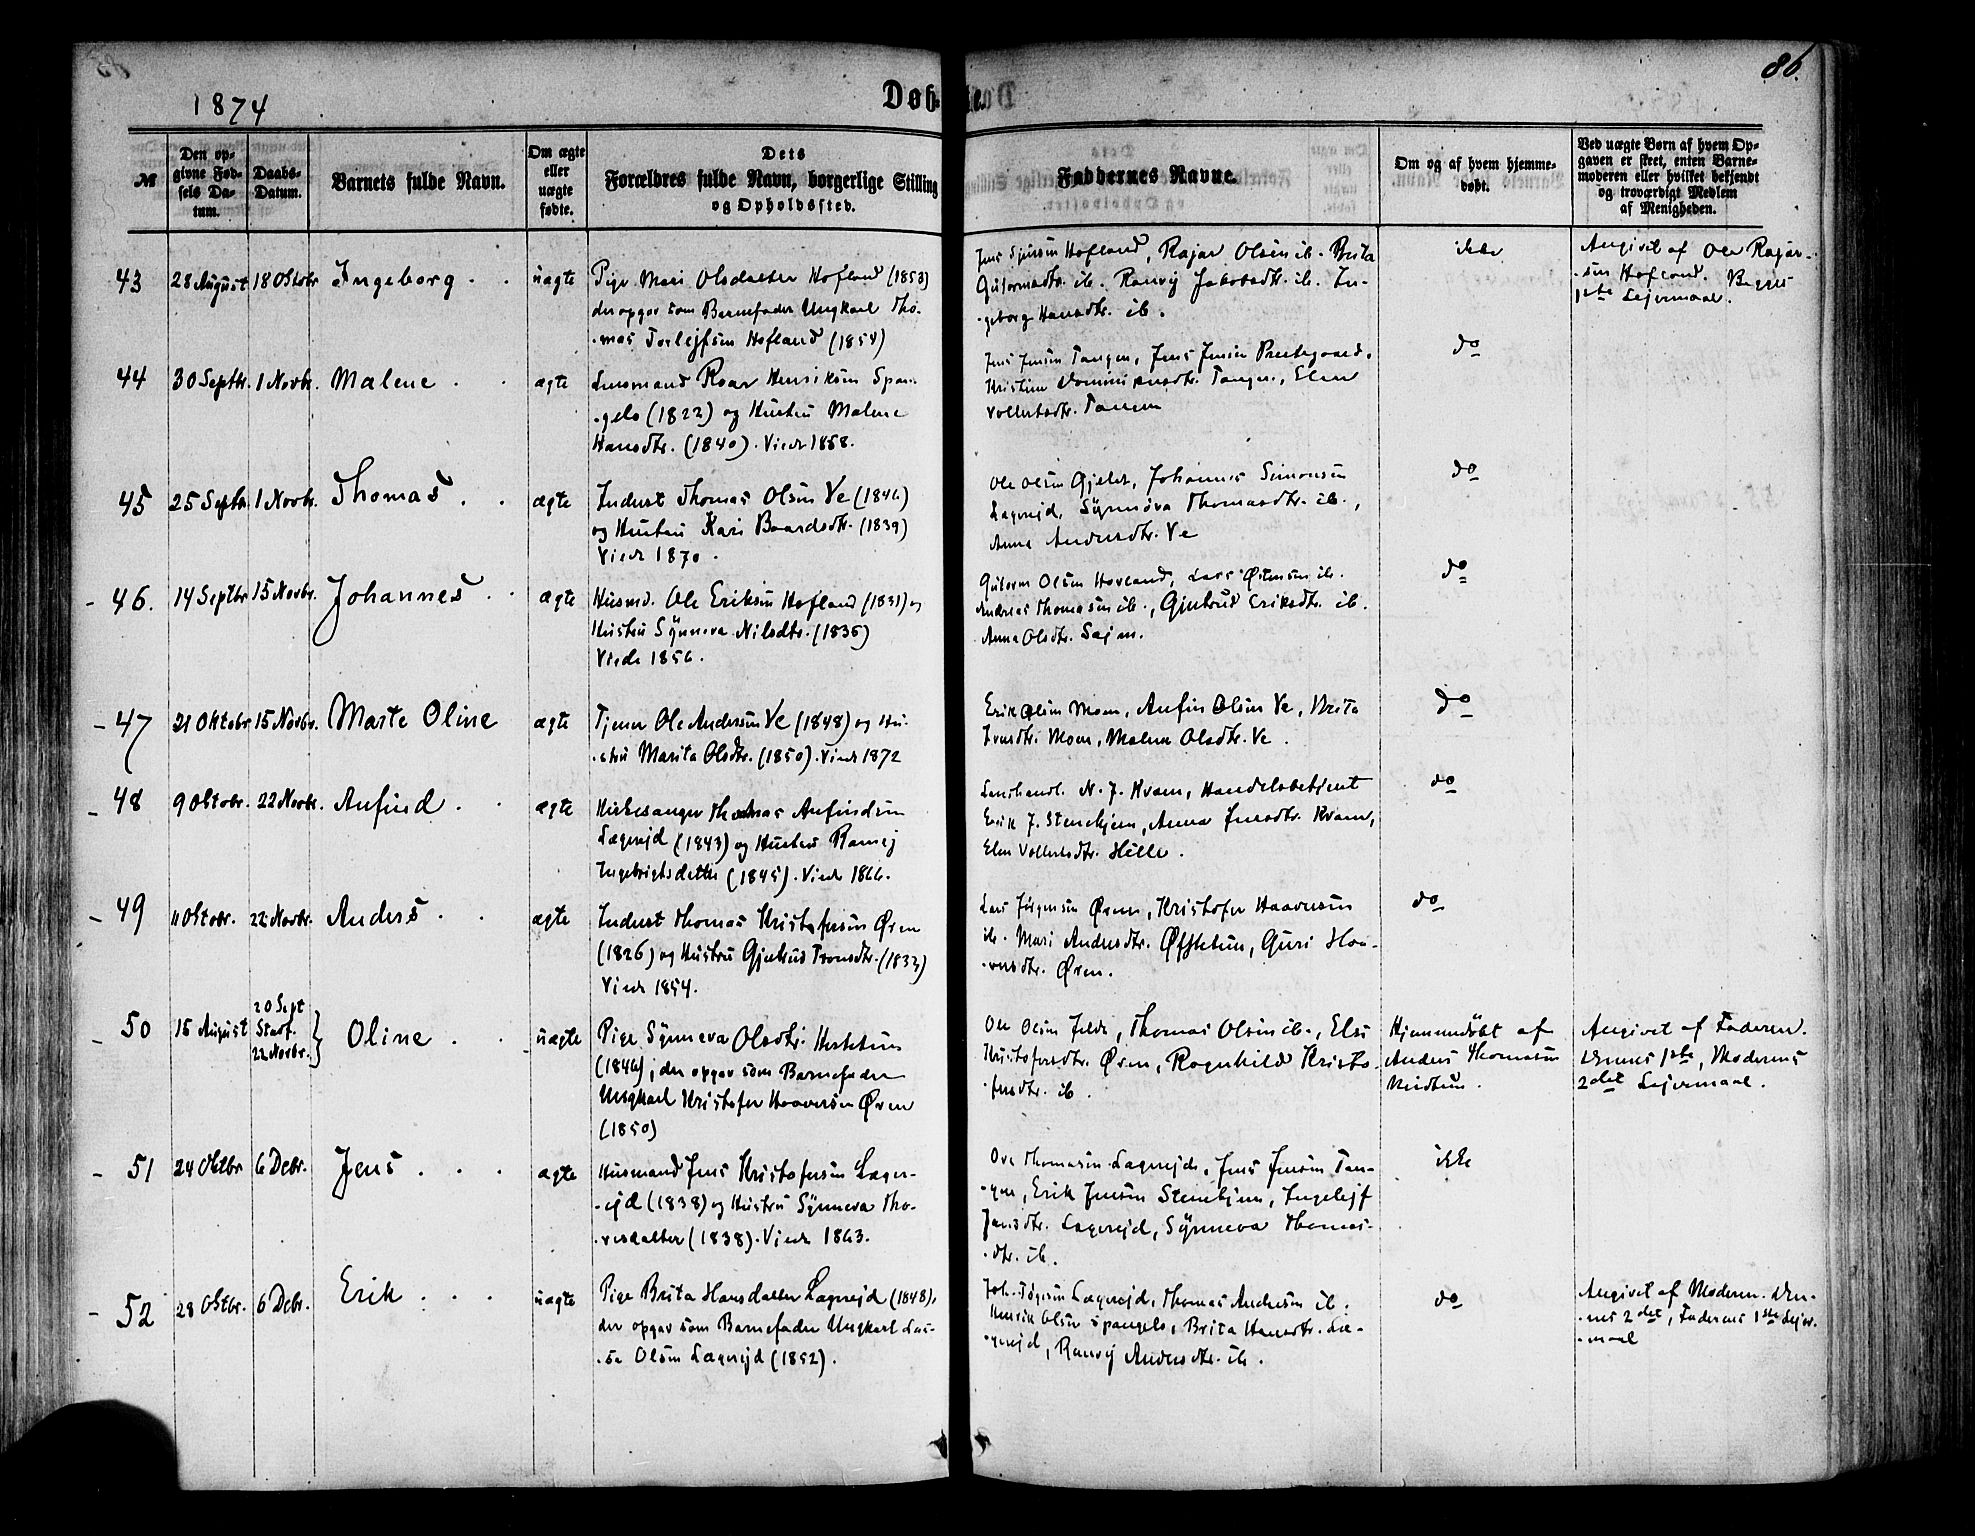 86.
1874
Døbte.
№
Den opgivne Fødsels Datum.
Daabs-Datum.
Barnets fulde Navn.
Om ægte eller uægte fødte.
Dets Forældres fulde Navn, borgerlige Stilling og Opholdssted.
Faddernes Navne.
Om og af hvem hjemmedøbt.
Ved uægte Børn af hvem Opgaven er sket, enten Barnemoderen eller hvilket bekjendt og troværdigt Medlem af Menigheden.
43 28 August 18 Oktobr Ingeborg uægte
Pige Mari Olsdatter Hofland (1853)
der opgav som Barnefader Ungkarl Tho-
mas Torlejfsen Hofland (1854)
Jens Sjursen Hofland, Rajar Olsen ib. Brita
Guttormsdtr. ib. Ranvej Jakobsdtr. ib. In-
geborg Hansdtr. ib.
ikke
Angivet af Ole Rajar-
sen Hofland. Begges
1ste Lejermaal.
44 30 Septbr. 1 Novbr. Malene ægte
Lensmand Roar Henriksen Span-
gelo (1822) og Hustru Malene
Hansdtr. (1840). Viede 1858.
Jens Jensen Tangen, Jens Jensen Prestegaard,
Kristine Dominicusdtr. Tangen, Elen
Vollertsdtr. Tangen
do
45 25 Septbr. 1 Novbr. Thomas ægte
Inderst Thomas Olsen Ve (1846)
og Hustru Kari Baardsdtr. (1839)
Viede 1870.
Ole Olsen Gjelde, Johannes Simonsen
Lægrejd, Synnøva Thomasdtr. ib.,
Anna Andersdtr. Ve
do
46. 14 Septbr 15 Novbr. Johannes ægte
Husmd. Ole Eriksen Hofland (1831) og
Hustru Synneva Nilsdtr. (1836)
Viede 1856.
Guttorm Olsen Hovland, Lars Østensen ib.
Andreas Thomasen ib., Gjertrud Eriksdtr. ib.
Anna Olsdtr. Sejm.
do
47 21 Oktobr 15 Novbr. Marte Oline ægte
Tjener Ole Andersen Ve (1848) og Hu-
stru Marita Olsdtr. (1850). Viede 1872
Erik Olsen Moen, Anfin Olsen Ve, Brita
Iversdtr. Moen, Malene Olsdtr. Ve.
do
48 9 Oktobr. 22 Novbr. Anfind ægte
Kirkesanger Thomas Anfindsen
Lægrejd (1843) og Hustru Ranvej
Ingebrigtsdatter (1845). Viede 1866.
Landhandl. N. J. Kvam, Handelsbetjent
Erik J. Stenehjem, Anna Jensdtr. Kvam,
Elen Vollertsdtr. Hille.
do
49 11 Oktobr. 22 Novbr. Anders ægte
Inderst Thomas Kristofersen Øren
(1826) og Hustru Gjertrud Tronsdtr. (1833)
Viede 1854.
Lars Jørgensen Øren, Kristofer Haaversen
ib. Mari Andersdtr. Øfstetun, Guri Haa-
versdtr. Øren.
do
50 15 August 20 Sept Stadf. 22 Novbr. Oline uægte
Pige Synneva Olsdtr. Hestetun
(1846); der opgav som Barnefader
Ungkarl Kristofer Haaversen Øren
(1850)
Ole Olsen Jelde, Thomas Olsen ib., Else
Kristofersdtr. Øren, Rognhild Kristo-
fersdtr. ib.
Hjemmedøbt af
Anders Thomasen
Nedtun.
Angivet af Faderen.
Dennes 1ste, Moderens
2det Lejermaal.
51 24 Oktbr 6 Debr. Jens ægte
Husmand Jens Kristofersen Læger-
ejd (1838) og Hustru Synneva Tho-
resdatter (1838). Viede 1863.
Ove Thomasen Lægrejd, Jens Jensen Tan-
gen, Erik Jensen Stenehjem, Ingelejf
Jensdtr. Lægrejd, Synneva Thomas-
dtr. ib.
ikke
52 28 Oktbr. 6 Debr. Erik uægte
Pige Brita Hansdatter Lægrejd (1848),
der opgav som Barnefader Ungkarl Las-
se Olsen Lægrejd (1852).
Joh. Tøgersen Lægrejd, Thomas Andersen ib.
Henrik Olsen Spangelo, Brita Hansdtr. Læ-
grejd, Ranvej Andersdtr. ib.
do
Angivet af Moderen. Den-
nes 2det, Faderens 1ste Lejer-
maal